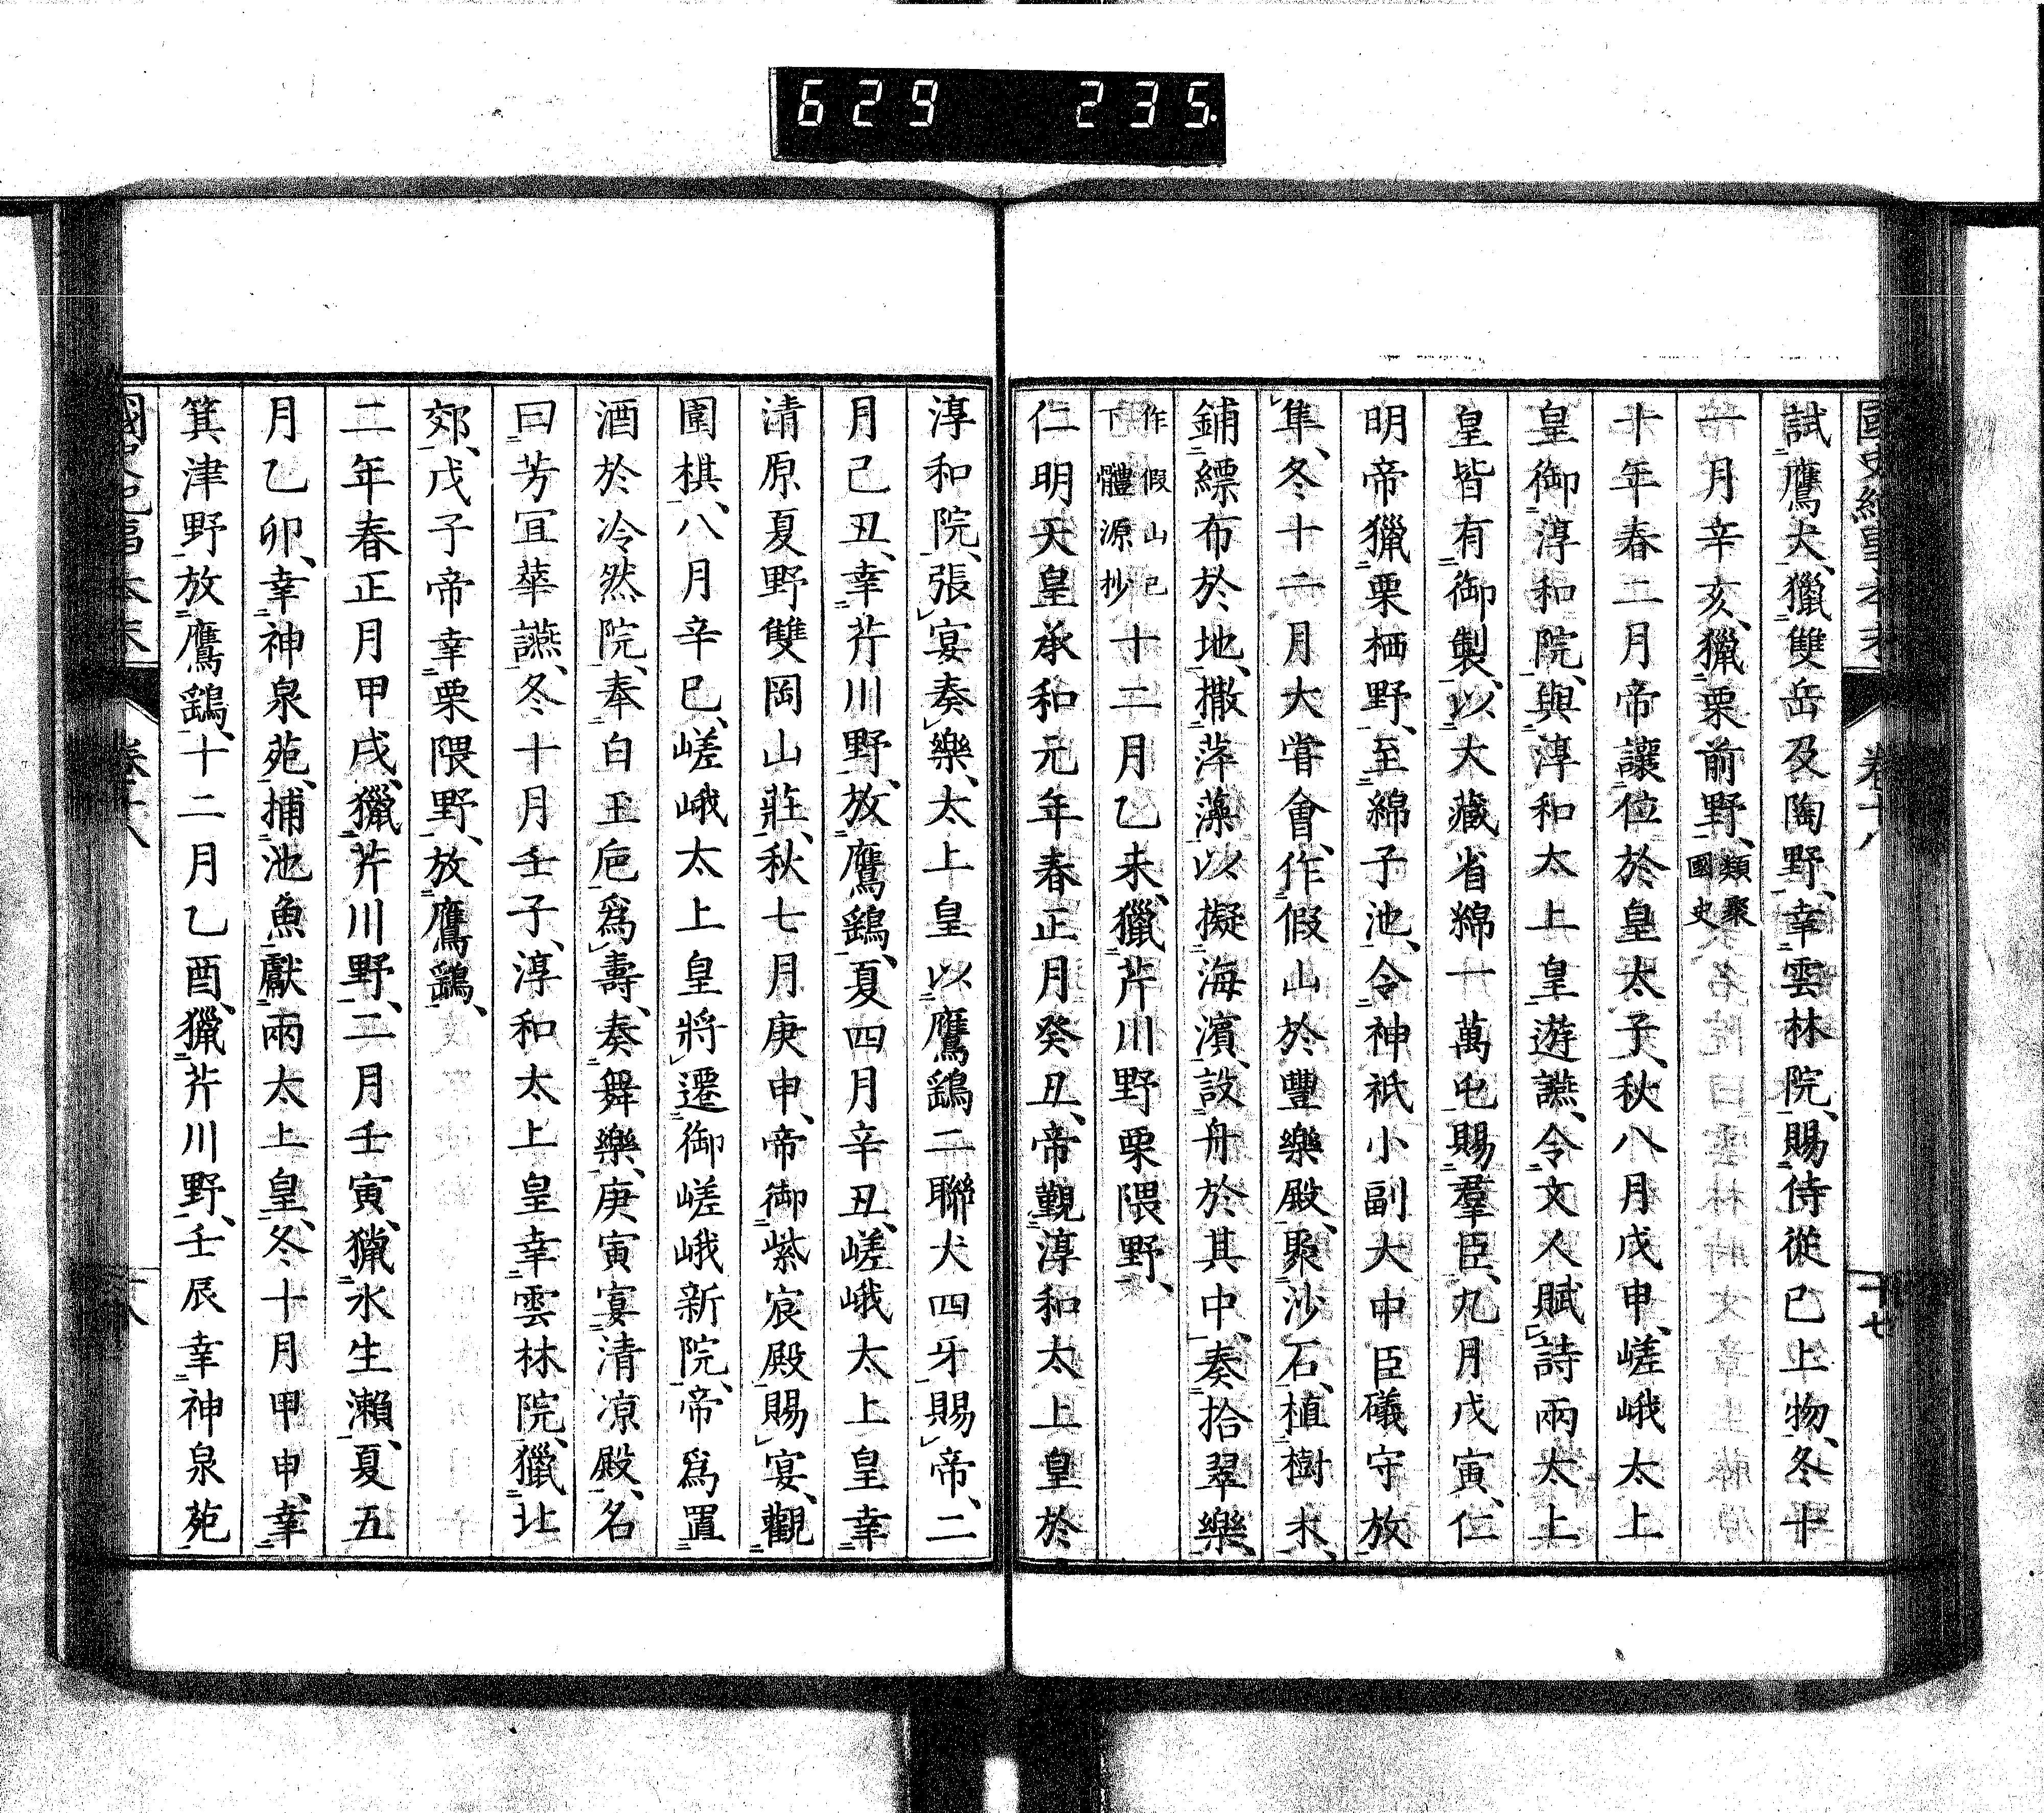 629 235.
國史紀事本末 卷十八 十七
試鷹犬、獵雙岳及陶野、幸雲林院、賜侍從已上物、冬十
一月辛亥、獵栗前野、類聚國史
十年春二月帝讓位於皇太子、秋八月戊申、嵯峨太上
皇御淳和院、與淳和太上皇遊讌、令文人賦詩兩太上
皇皆有御製、以大藏省綿一萬屯賜羣臣、九月戊寅、仁
明帝獵栗栖野、至綿子池、令神祇小副大中臣礒守放
隼、冬十二月大甞會、作假山於豐樂殿、聚沙石、植樹木、
鋪縹布於地、撒萍藻以擬海濱、設舟於其中、奏拾翠樂、
作假山已下體源抄十二月乙未、獵芹川野栗隈野、
仁明天皇承和元年春正月癸丑、帝覲淳和太上皇於
淳和院、張宴奏樂、太上皇以鷹鷂二聯犬四牙賜帝、二
月己丑、幸芹川野、放鷹鷂、夏四月辛丑、嵯峨太上皇幸
清原夏野雙岡山莊、秋七月庚申、帝御紫宸殿賜宴、觀
圍棋、八月辛巳、嵯峨太上皇將遷御嵯峨新院、帝爲置
酒於冷然院、奉白玉巵爲壽、奏舞樂、庚寅宴清凉殿、名
曰芳宜華讌、冬十月壬子、淳和太上皇幸雲林院、獵北
郊、戊子帝幸栗隈野、放鷹鷂、
二年春正月甲戌、獵芹川野、二月壬寅、獵水生瀨、夏五
月乙卯、幸神泉苑、捕池魚獻兩太上皇、冬十月甲申、幸
箕津野放鷹鷂、十二月乙酉、獵芹川野、壬辰幸神泉苑